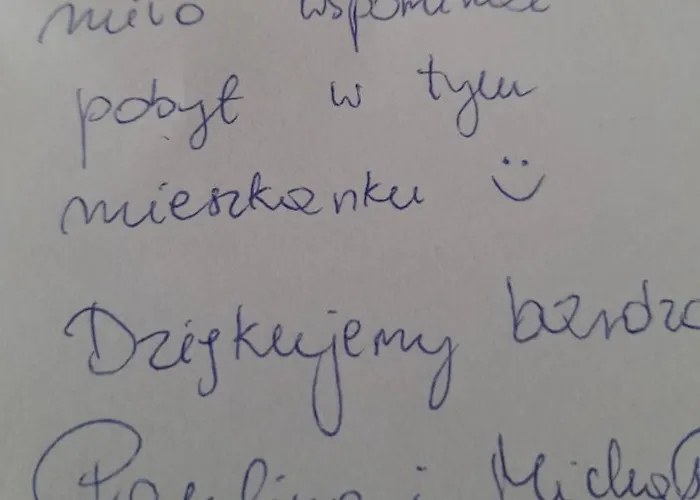 miło wspominać
pobyt w tym
mieszkanku :)
Dziękujemy bardzo
Paulina i Michał